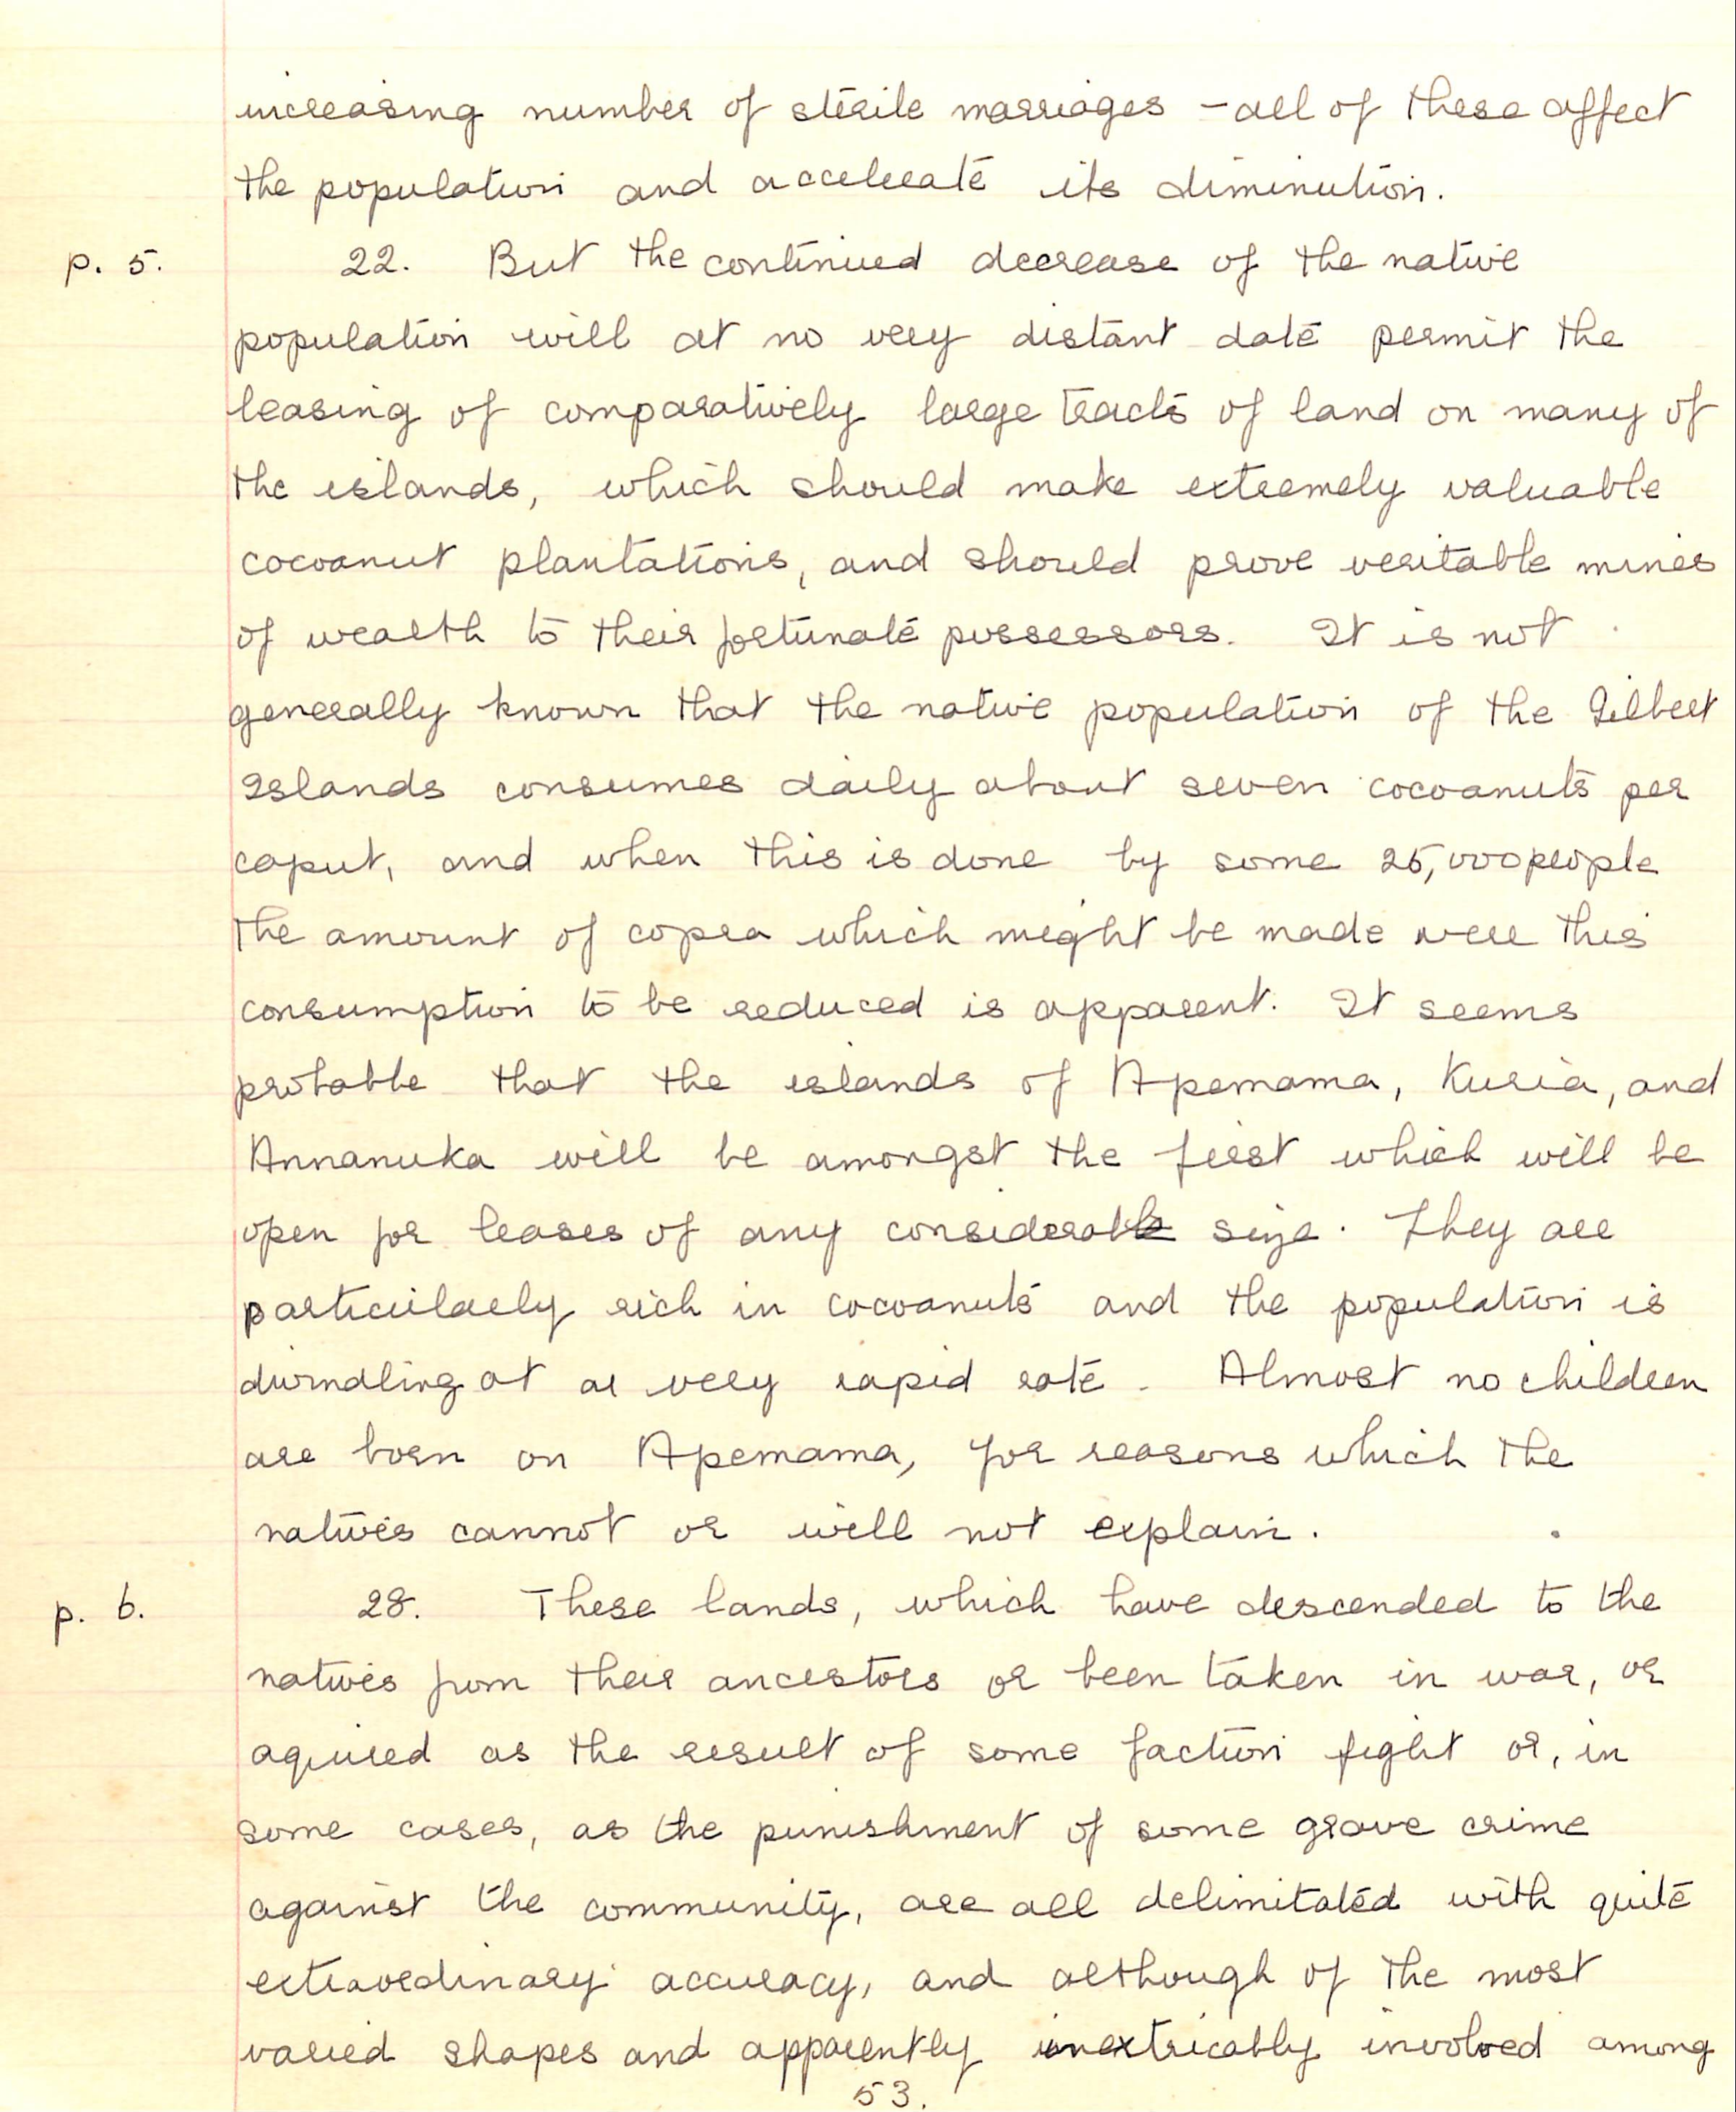 increasing number of sterile marriages - all of these affect
the population and accelerate its diminution.
p. 5. 22. But the continued decrease of the native
population will at no very distant date permit the
leasing of comparatively large tracts of land on many of
the islands, which should make extremely valuable
cocoanut plantations, and should prove veritable mines
of wealth to their fortunate possessors. It is not
generally known that the native population of the Gilbert
Islands consumes daily about seven cocoanuts per
caput, and when this is done by some 25,000 people
the amount of copra which might be made were this
consumption to be reduced is apparent. It seems
probable that the islands of Apemama, Kuria, and
Annanuka will be amongst the first which will be
open for leases of any considerable size. They are
particularly rich in cocoanuts and the population is
dwindling at a very rapid rate. Almost no children
are born on Apemama, for reasons which the
natives cannot or will not explain.
p. 6. 28. These lands, which have descended to the
natives from their ancestors or been taken in war, or
aquired as the result of some faction fight or, in
some cases, as the punishment of some grave crime
against the community, are all delimitated with quite
extraordinary accuracy, and although of the most
varied shapes and apparently inextricably involved among
53.